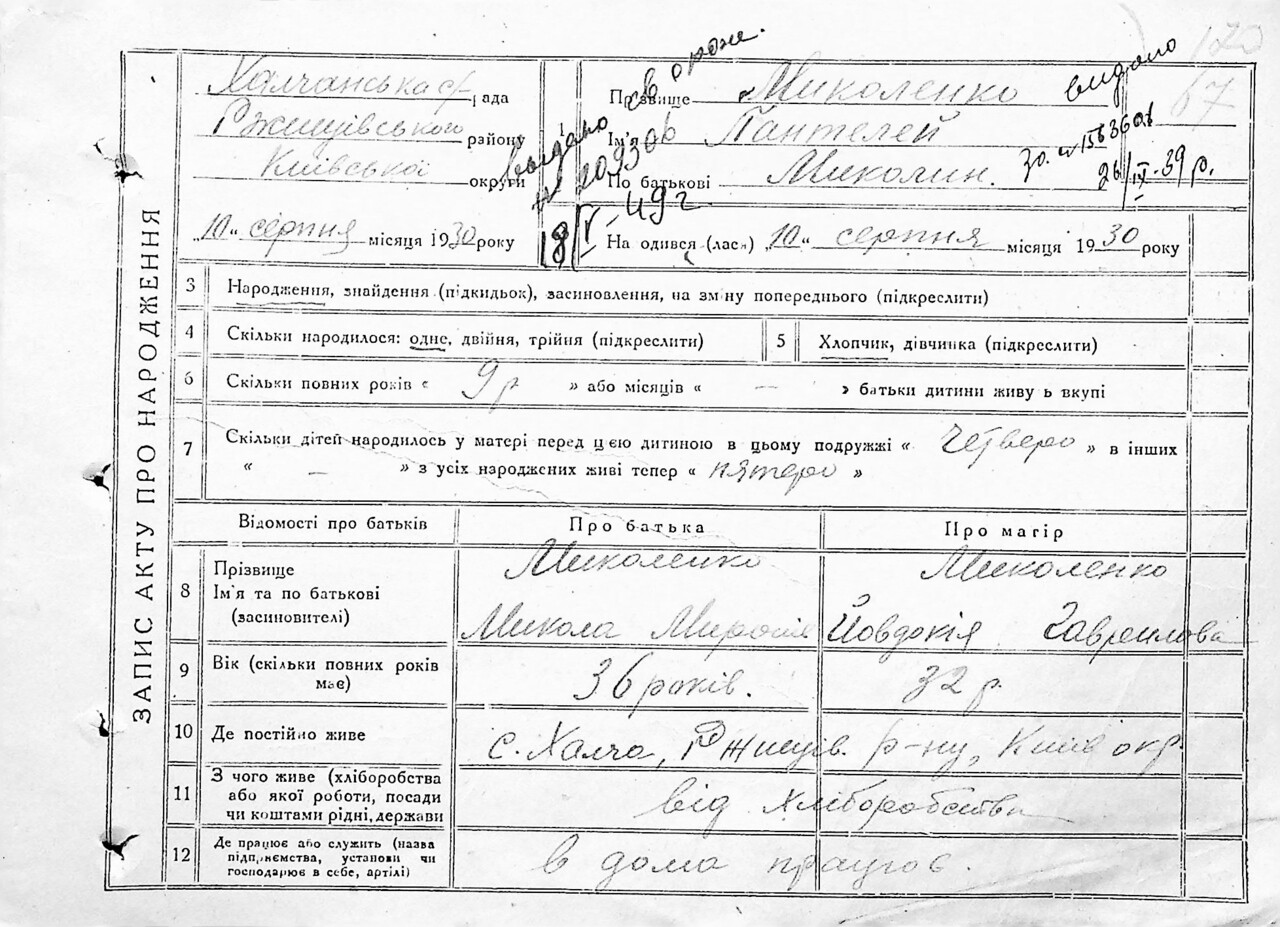 170
67
ЗАПИС АКТУ ПРО НАРОДЖЕННЯ
Халчанська с/рада
Ржищівського району
Київської округи
„10“ серпня місяця 1930 року
1
Прізвище Миколенко
Ім'я Пантелей
По батькові Миколин.
видано
26/IX-39 р.
видано
18/V-49 г
На одився (лася) „10“ серпня місяця 1930 року
3 Народження, знайдення (підкидьок), засиновлення, на зміну попереднього (підкреслити)
4 Скільки народилося: одне, двійня, трійня (підкреслити)
5 Хлопчик, дівчинка (підкреслити)
6 Скільки повних років « 9 р » або місяців « — » батьки дитини живуть вкупі
7 Скільки дітей народилось у матері перед цією дитиною в цьому подружжі « четверо » в інших
« — » з усіх народжених живі тепер « пятеро »
Відомості про батьків Про батька Про матір
8 Прізвище Миколенко Миколенко
Ім'я та по батькові
(засиновителі) Микола Йовдокія Гаврилова
9 Вік (скільки повних років має) 36 років. 32 р.
10 Де постійно живе с. Халча, Ржищів. р-ну, Київ окр.
11 З чого живе (хліборобства
або якої роботи, посади
чи коштами рідні, держави від хліборобства
12 Де працює або служить (назва
підприємства, установи чи
господарює в себе, артілі) в дома працює.